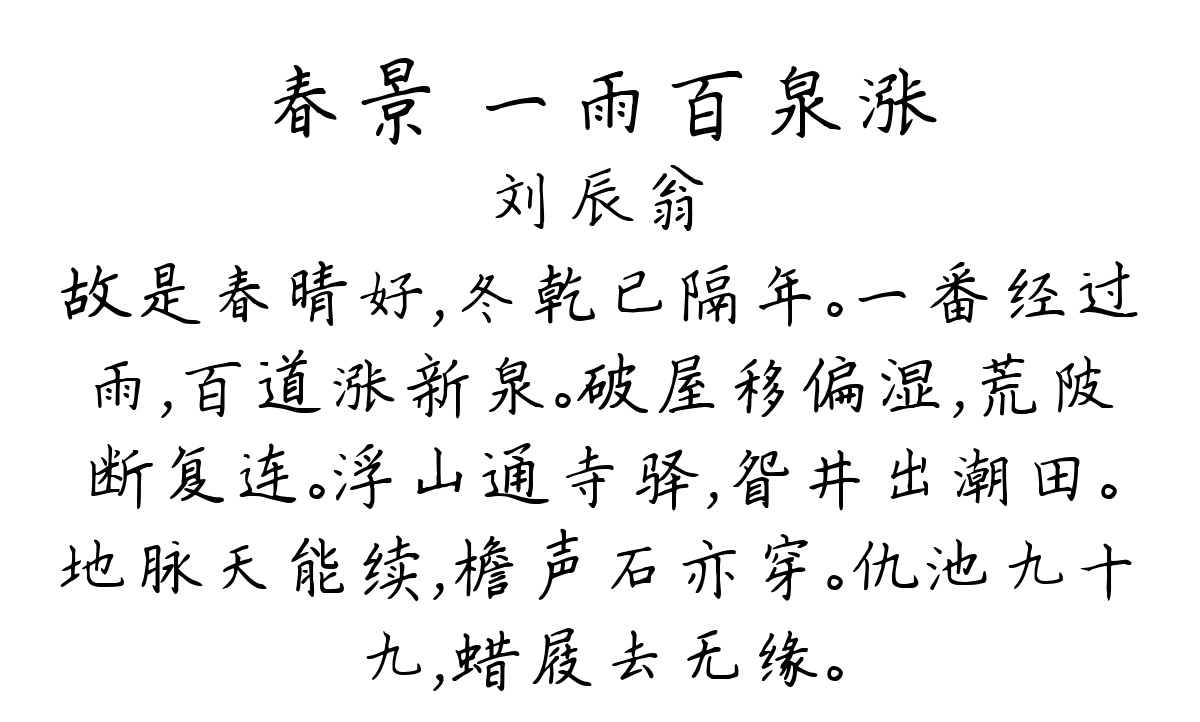 春景 一雨百泉涨
刘辰翁
故是春晴好,冬乾已隔年。一番经过
雨,百道涨新泉。破屋移偏湿,荒陂
断复连。浮山通寺驿,眢井出潮田。
地脉天能续,檐声石亦穿。仇池九十
九,蜡屐去无缘。